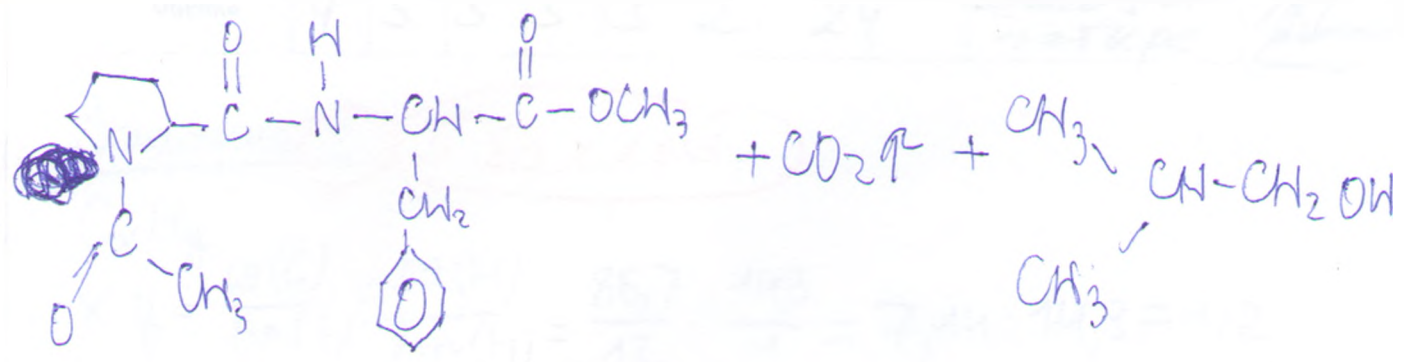 O H O
C - N - CH - C - OCH₃
N + CO₂↑ + CH₃
CH - CH₂OH
C CH₂ CH₃
O CH₃